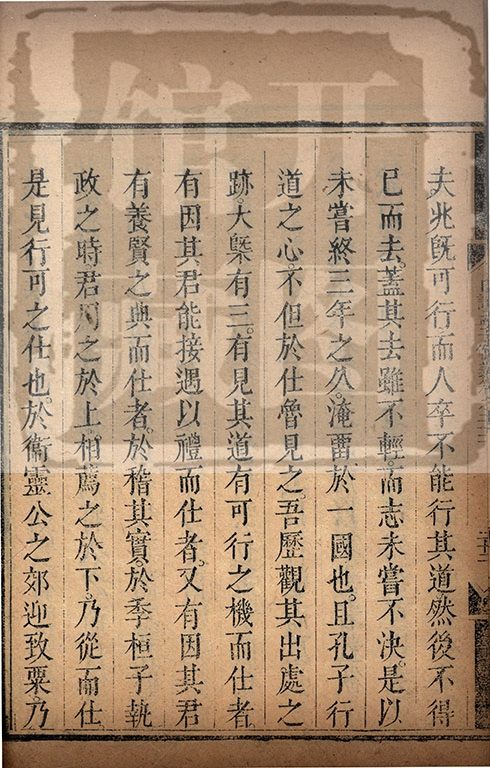 夫兆既可行而人卒不能行其道然後不得
已而去蓋其去雖不輕而志未嘗不決是以
未嘗終三年之久淹留於一國也且孔子行
道之心不但於仕魯見之吾歷觀其出處之
跡大槩有三有見其道有可行之機而仕者
有因其君能接遇以禮而仕者又有因其君
有養賢之典而仕者於稽其實於季桓子執
政之時君用之於上相薦之於下乃從而仕
是見行可之仕也於衞靈公之郊迎致粟乃